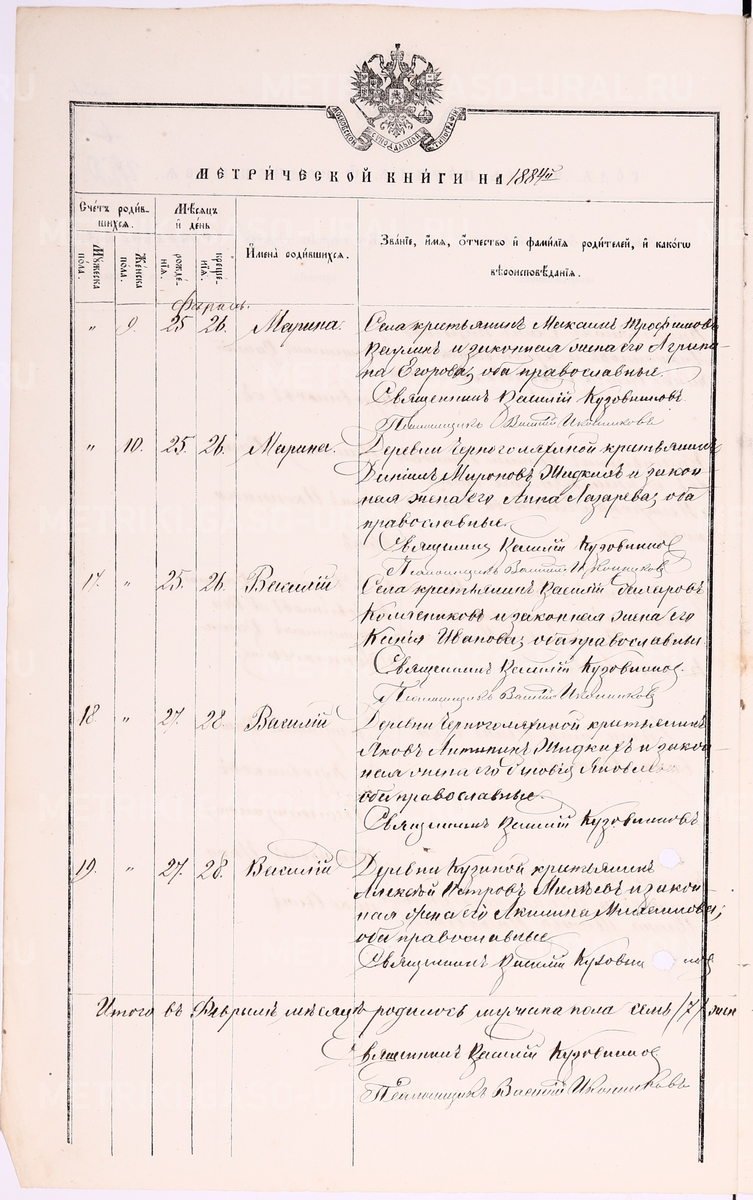 МОСКОВСКОЙ СѴНОДАЛЬНОЙ ТИПОГРАФІИ
МЕТРИЧЕСКОЙ КНИГИ НА 1884й
Счетъ родившихся.
Мужеска пола.
Женска пола.
Мѣсяцъ и день
рожденія.
крещенія.
Имена родившихся.
Званіе, имя, отчество и фамилія родителей, и какого вѣроисповѣданія.
Февраль.
" 9. 25 26. Марина.
Села крестьянинъ Максимъ Трофимовъ
и законная жена его Агрипи-
на Егорова, оба православные.
Священникъ Василій Кузовниковъ
Псаломщикъ Василій Иконниковъ
" 10. 25. 26. Марина.
Деревни Черноголяхиной крестьянинъ
Мироновъ Жидкихъ и закон-
ная жена его Анна Лазарева, оба
православные.
Священникъ Василій Кузовниковъ
Псаломщикъ Василій Иконниковъ
17. " 25. 26. Василій
Села крестьянинъ Василій
и законная жена его
Ксенія Иванова, оба православные.
Священникъ Василій Кузовниковъ
Псаломщикъ Василій Иконниковъ
18 " 27. 28. Василій
Деревни Черноголяхиной крестьянинъ
Яковъ Жидкихъ и закон-
ная жена его Яковлева
оба православные.
Священникъ Василій Кузовниковъ
19. " 27. 28. Василій
Деревни Кузиной крестьянинъ
Алексѣй Петровъ и закон-
ная жена его Акилина
оба православные
Священникъ Василій Кузовниковъ
Итого въ Февралѣ мѣсяцѣ родилось мужска пола семь /7/ жен
Священникъ Василій Кузовниковъ
Псаломщикъ Василій Иконниковъ